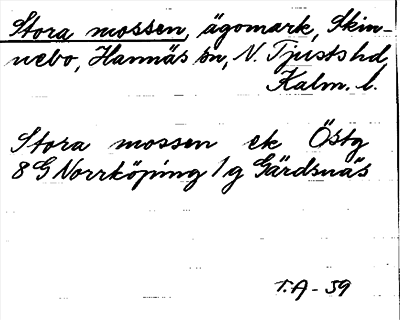 Stora mossen, ägomark, Skin-
nebo, Hannäs sn, N. Tjusts hd,
Kalm. l.
Stora mossen ek Östg
8G Norrköping 1g Gärdsnäs
T.A - 59